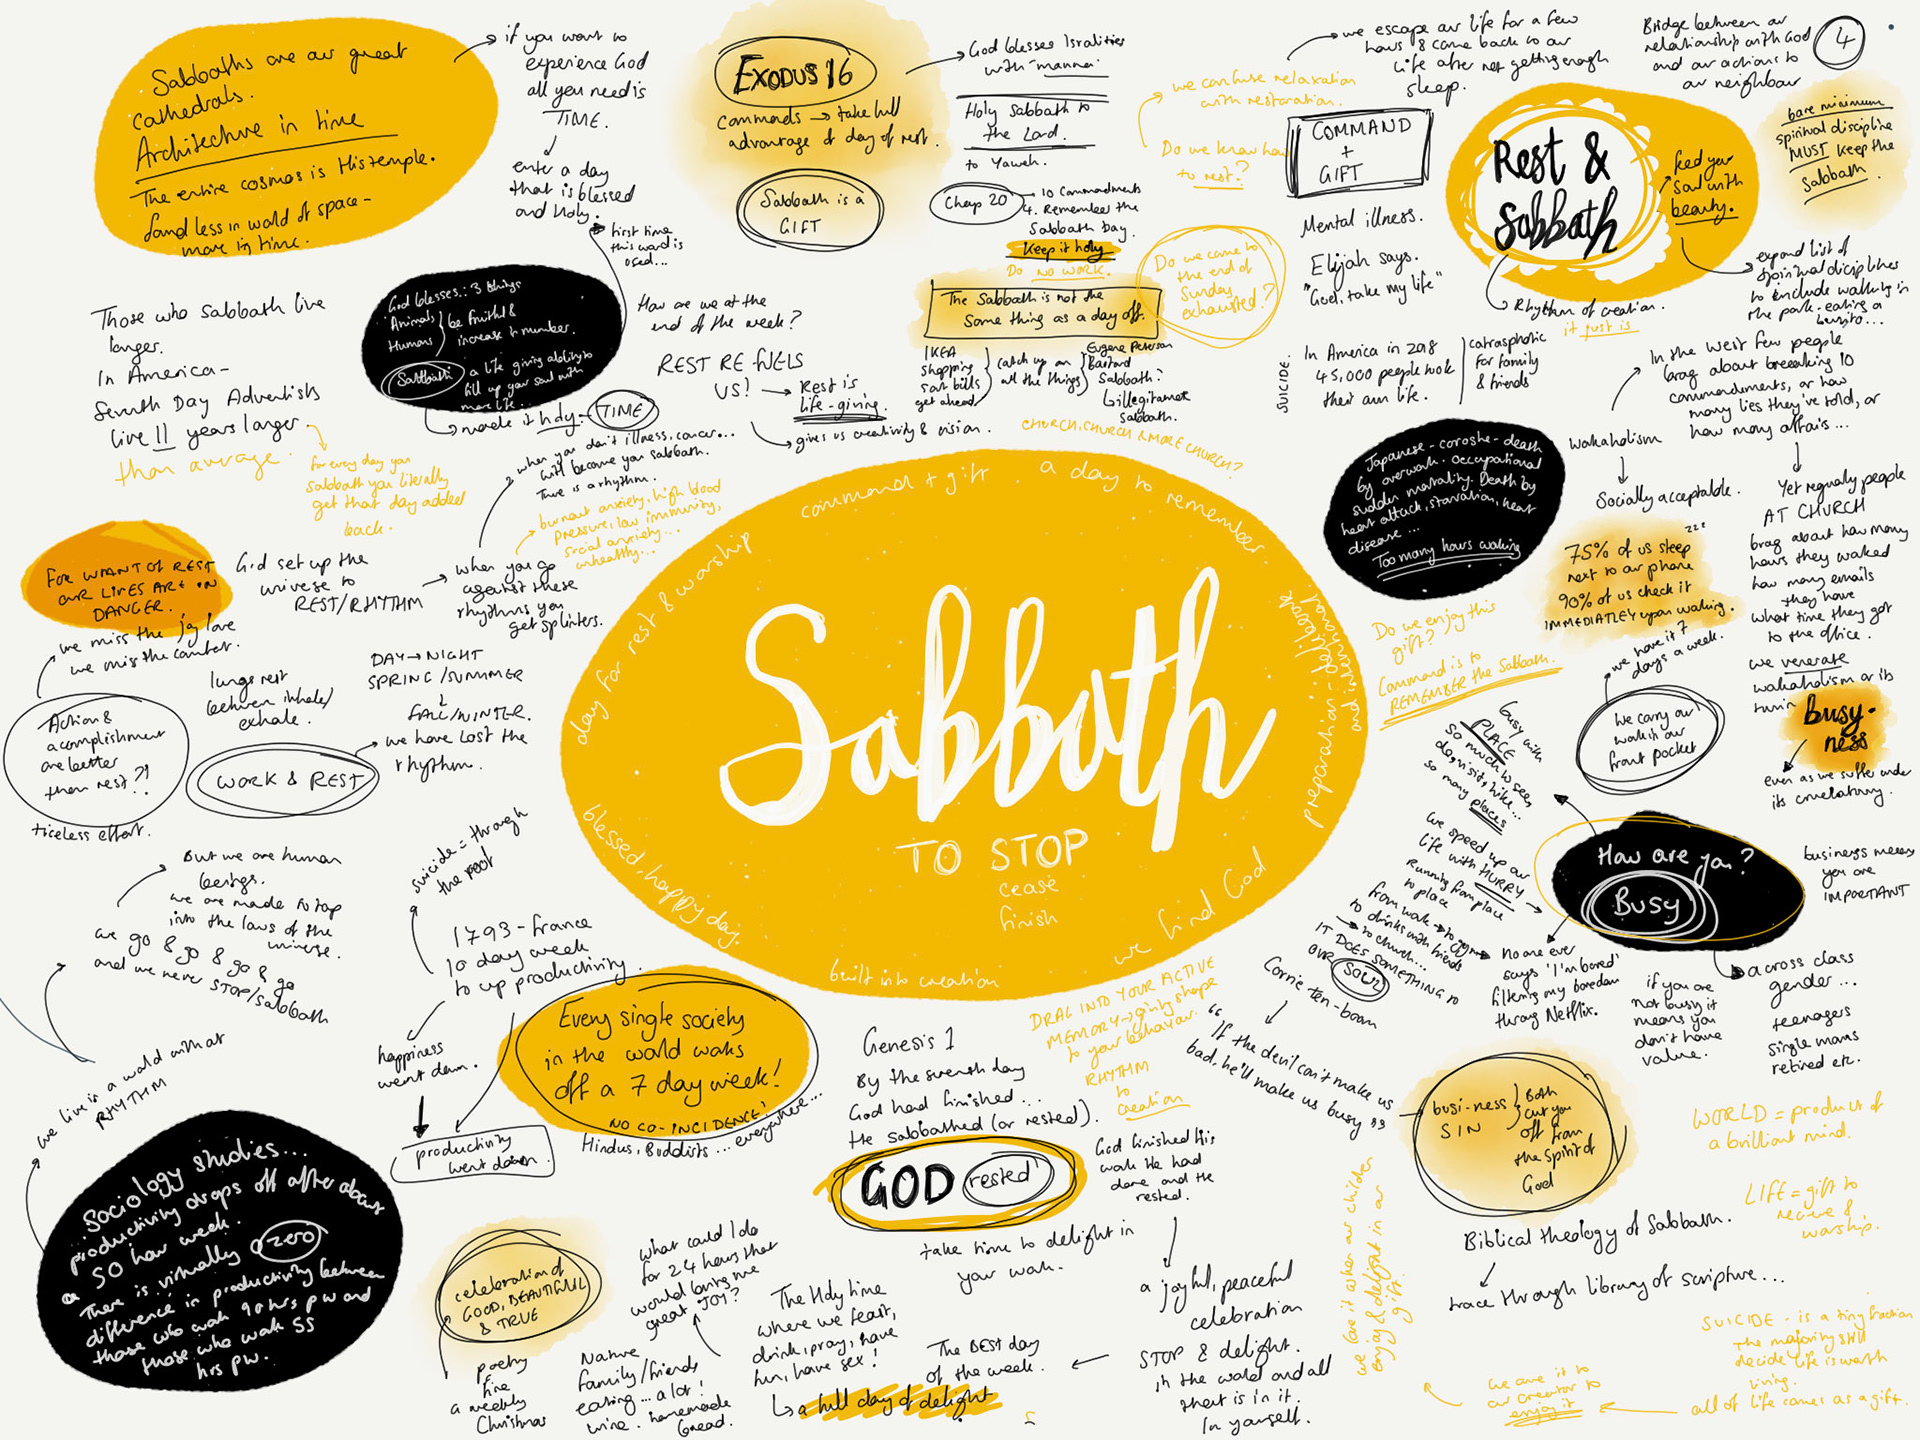 Sabbaths are our great
cathedrals.
Architecture in time
The entire cosmos is His temple.
found less in world of space -
more in time.
if you want to
experience God
all you need is
TIME.
enter a day
that is blessed
and holy.
first time
this word is
used...
EXODUS 16
commands → take full
advantage of day of rest.
Sabbath is a
GIFT
God blesses Isralities
with manna.
Holy Sabbath to
the Lord.
to Yaweh.
Chap 20
10 Commandments
4. Remember the
Sabbath Day.
Keep it holy
Do NO WORK.
we confuse relaxation
with restoration.
Do we know how
to rest?
we escape our life for a few
hours & come back to our
life after not getting enough
sleep.
COMMAND
+
GIFT
Bridge between our
relationship with God
and our actions to
our neighbour
4
bare minimum
spiritual discipline
MUST keep the
Sabbath.
Rest &
Sabbath
feed your
soul with
beauty.
expand list of
spiritual diciplines
to include walking in
the park - eating a
burrito...
Rhythm of creation.
it just is
Mental illness.
Elijah says.
"God, take my life"
SUICIDE.
In America in 2018
45,000 people took
their own life.
catrasphotic
for family
& friends
Do we come to
the end of
Sunday
exhausted?
The Sabbath is not the
Same thing as a day off.
IKEA
shopping
sort bills
get ahead
catch up on
all the things
Eugene Peterson
Bastard
Sabbath?
↳ illegitamate
Sabbath.
CHURCH, CHURCH & MORE CHURCH?
Those who Sabbath live
longer.
In America -
Seventh Day Adventists
live 11 years longer
than average.
for every day you
sabbath you literally
get that day added
back.
God blesses: 3 things
Animals
Humans
be fruitful &
increase in number.
Sabbath
a life giving ability to
fill up your soul with
more life...
made it holy - TIME
How are we at the
end of the week?
REST RE FUELS
US!
Rest is
life-giving.
gives us creativity & vision.
when you don't illness, cancer...
will become your sabbath.
There is a rhythm.
burnout anxiety, high blood
pressure, low immunity,
social anxiety...
unhealthy...
FOR WANT OF REST
OUR LIVES ARE IN
DANGER.
we miss the joy love
we miss the comfort.
God set up the
universe to
REST/RHYTHM
when you go
against these
rhythms you
get splinters.
lungs rest
between inhale/
exhale.
DAY → NIGHT
SPRING/SUMMER
FALL/WINTER.
we have lost the
rhythm.
Action &
acomplishment
are better
than rest?!
tireless effort.
WORK & REST
But we are human
beings.
we are made to tap
into the laws of the
universe.
we go & go & go & go
and we never STOP/sabbath
we live in a world without
RHYTHM
suicide = through
the roof
1793 - france
10 day week
to up productivity.
happiness
went down.
productivity
went down.
Every single society
in the world works
off a 7 day week!
NO CO-INCIDENCE!
Hindus, Buddists... everywhere...
Sabbath
TO STOP
cease
finish
command + gift . a day to remember.
day for rest & worship
preparation - deliberate
and intentional
blessed, happy day.
built into creation
we find God
Japanese - coroshe - death
by overwork. Occupational
sudden mortality. Death by
heart attack, starvation, heart
disease...
Too many hours working
In the West few people
brag about breaking 10
commandments, or how
many lies they've told, or
how many affairs...
workaholism
Socially acceptable.
Yet regually people
AT CHURCH
brag about how many
hours they worked
how many emails
they have
what time they got
to the office.
we venerate
workaholism or its
twin
busy-
ness
even as we suffer under
its
75% of us sleep
next to our phone
90% of us check it
IMMEDIATLEY upon waking.
zzz
we have it 7
days a week.
we carry our
work in our
front pocket
Do we enjoy this
gift?
Command is to
REMEMBER the Sabbath.
busy with
PLACE
So much to see,
do, visit, hike...
so many places
we speed up our
life with HURRY
Running from place
to place
from work → to gym
to drinks with friends
→ to church...
IT DOES SOMETHING TO
OUR SOUL
How are you?
Busy
business means
you are
IMPORTANT
no one ever
says 'I'm bored'
filtering my boredom
throug Netflix.
if you are
not busy it
means you
don't have
value.
across class
gender...
teenagers
single moms
retired etc.
Corrie ten-boom
"If the devil can't make us
bad, he'll make us busy"
busi-ness
SIN
Both
cut you
off from
the Spirit of
God
WORLD = product of
a brilliant mind.
LIFE = gift to
recieve &
worship.
Biblical theology of Sabbath.
trace through library of scripture...
SUICIDE - is a tiny fraction
The majority still
decide life is worth
living.
all of life comes as a gift.
we owe it to
our creator to
enjoy it
we love it when our children
enjoy & delight in our
gift.
DRAG INTO YOUR ACTIVE
MEMORY → giving shape
to your behaviour.
RHYTHM
to
Creation
Genesis 1
By the seventh day
God had finished...
He sabbathed (or rested).
GOD rested
God finished His
work He had
done and He
rested.
take time to delight in
your work.
a joyful, peaceful
celebration
STOP & delight.
in the world and all
that is in it.
In yourself.
The BEST day
of the week.
The Holy time
where we feast,
drink, pray, have
fun, have sex!
↳ a full day of delight
what could I do
for 24 hours that
would bring me
great JOY?
Nature
family/friends
eating... a lot!
wine. homemade
bread.
celebration of
GOOD, BEAUTIFUL
& TRUE
poetry
fire
a weekly
Christmas
Sociology studies...
productivity drops off after about
a 50 hour week.
There is virtually zero
difference in productivity between
those who work 90 hrs pw and
those who work 55
hrs pw.